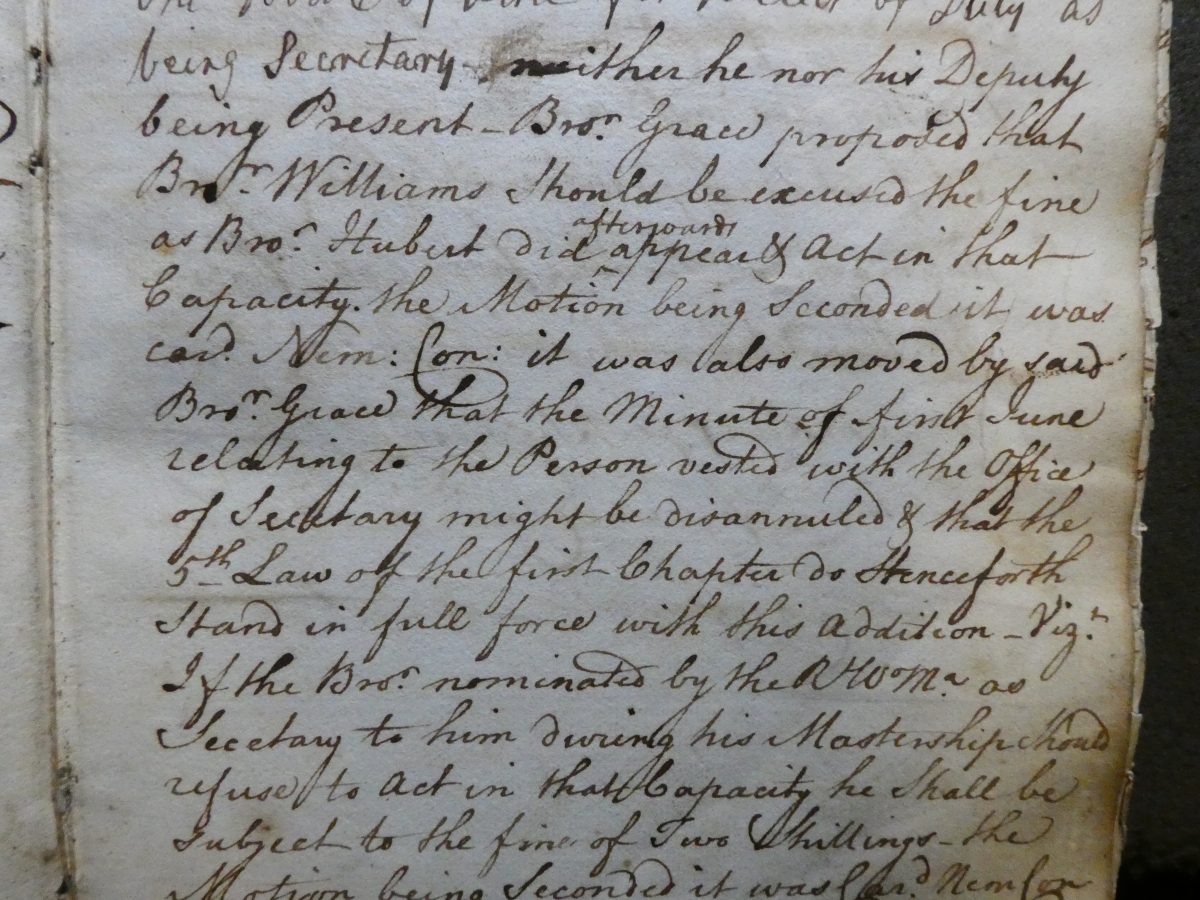 of July as
being Secretary - neither he nor his Deputy
being Present - Bror. Grace proposed that
Bror. Williams Should be excused the fine
afterwards
as Bror. Hubert did ^ appear & Act in that
Capacity. the Motion being Seconded it was
card. Nem: Con: it was also moved by said
Bror. Grace that the Minute of first June
relating to the Person vested with the Office
of Secetary might be disannuled & that the
5th Law of the first Chapter do Henceforth
Stand in full force with this Addition - Vizt.
If the Bror. nominated by the RWMa. as
Secetary to him dureing his Mastership should
refuse to Act in that Capacity he Shall be
subject to the fine of Two Shillings - the
Motion being Seconded it was Card. Nem Con